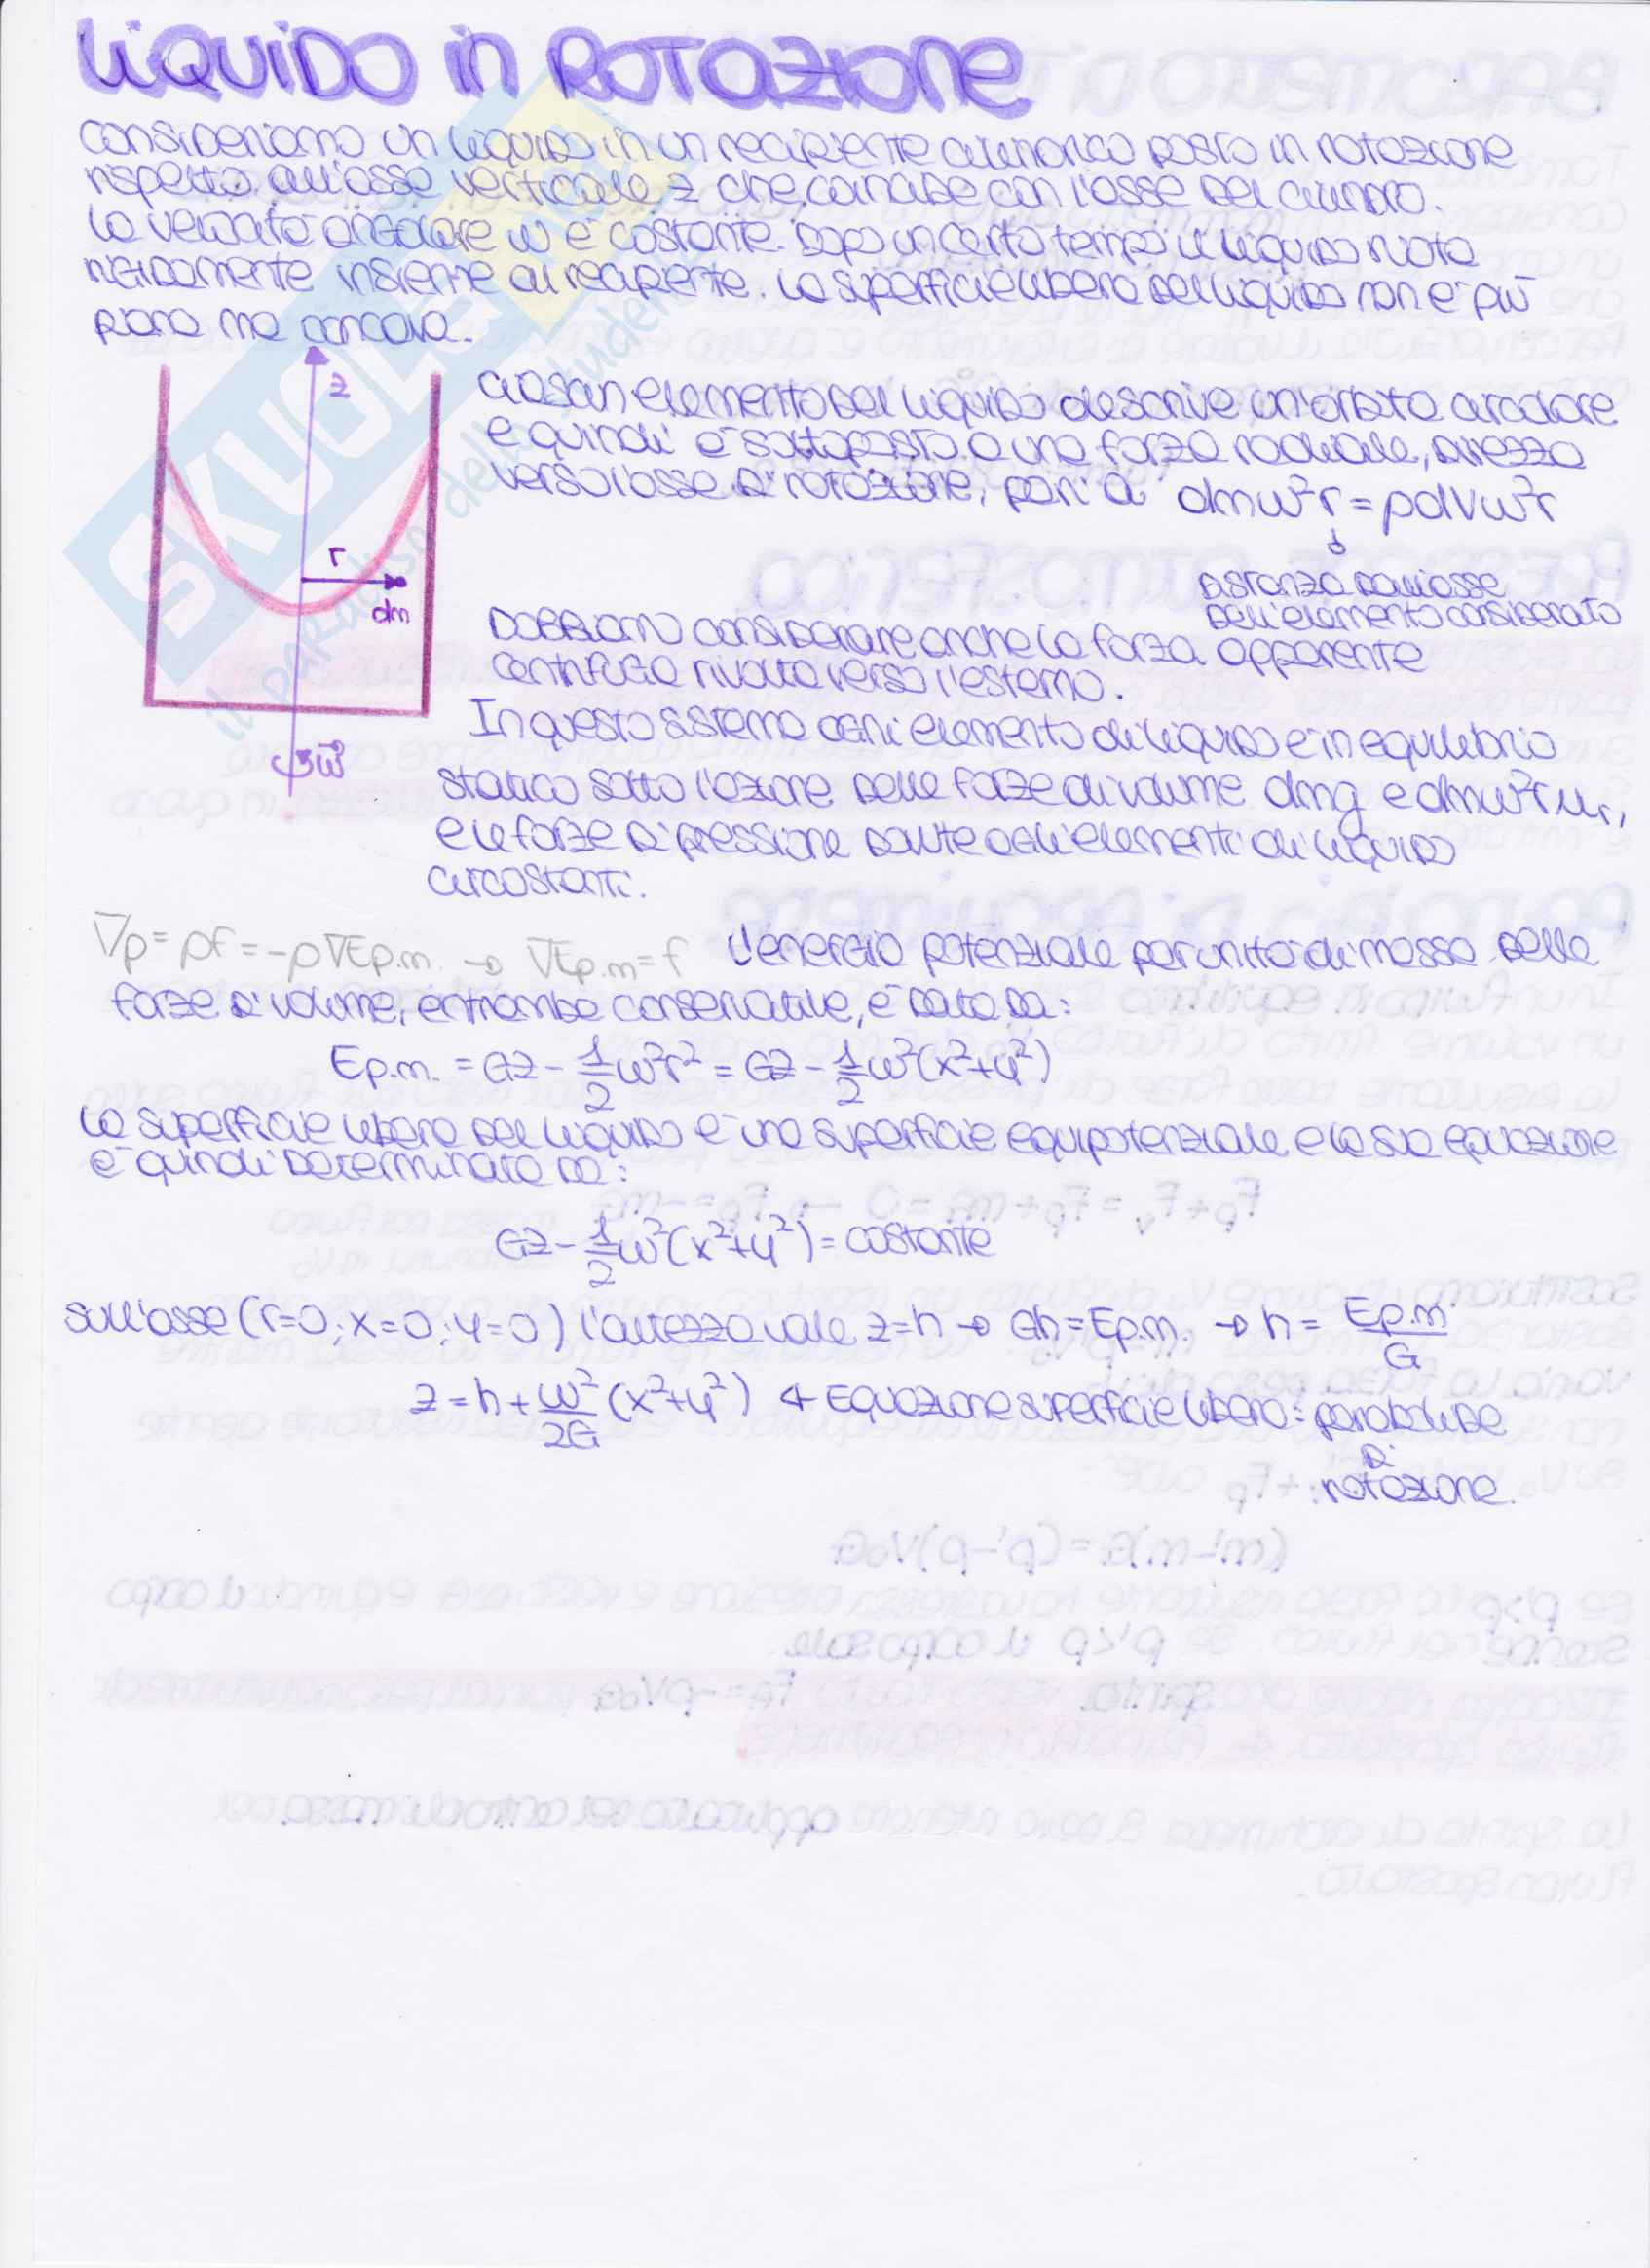 LIQUIDO IN ROTAZIONE
CONSIDERIAMO UN LIQUIDO in un recipiente cilindrico posto in rotazione
rispetto all'asse verticale z che coincide con l'asse del cilindro.
La velocità angolare ω è costante. Dopo un certo tempo il liquido ruota
rigidamente insieme al recipiente. La superficie libera del liquido non è più
piana ma concava.
z
r
dm
ω
Ciascun elemento del liquido descrive un'orbita circolare
e quindi è sottoposto a una forza radiale, diretta
verso l'asse di rotazione, pari a dmω²r = ρdVω²r
distanza dall'asse
dell'elemento considerato
Dobbiamo considerare anche la forza apparente
centrifuga rivolta verso l'esterno.
In questo sistema ogni elemento di liquido è in equilibrio
statico sotto l'azione delle forze di volume dmg e dmω²r uᵣ,
e le forze di pressione dovute agli elementi di liquido
circostanti.
∇p = ρf = -ρ∇Ep.m. → ∇Ep.m = f L'energia potenziale per unità di massa delle
forze di volume, entrambe conservative, è data da:
Ep.m. = Gz - 1/2 ω²r² = Gz - 1/2 ω²(x²+y²)
La superficie libera del liquido è una superficie equipotenziale e la sua equazione
è quindi determinata da:
Gz - 1/2 ω²(x²+y²) = costante
Sull'asse (r=0; x=0; y=0) l'altezza vale z=h → Gh = Ep.m. → h = Ep.m./G
z = h + ω²/2G (x²+y²) ← Equazione superficie libera: paraboloide
di
rotazione.
SKUOLA.net
il paradiso dello studente